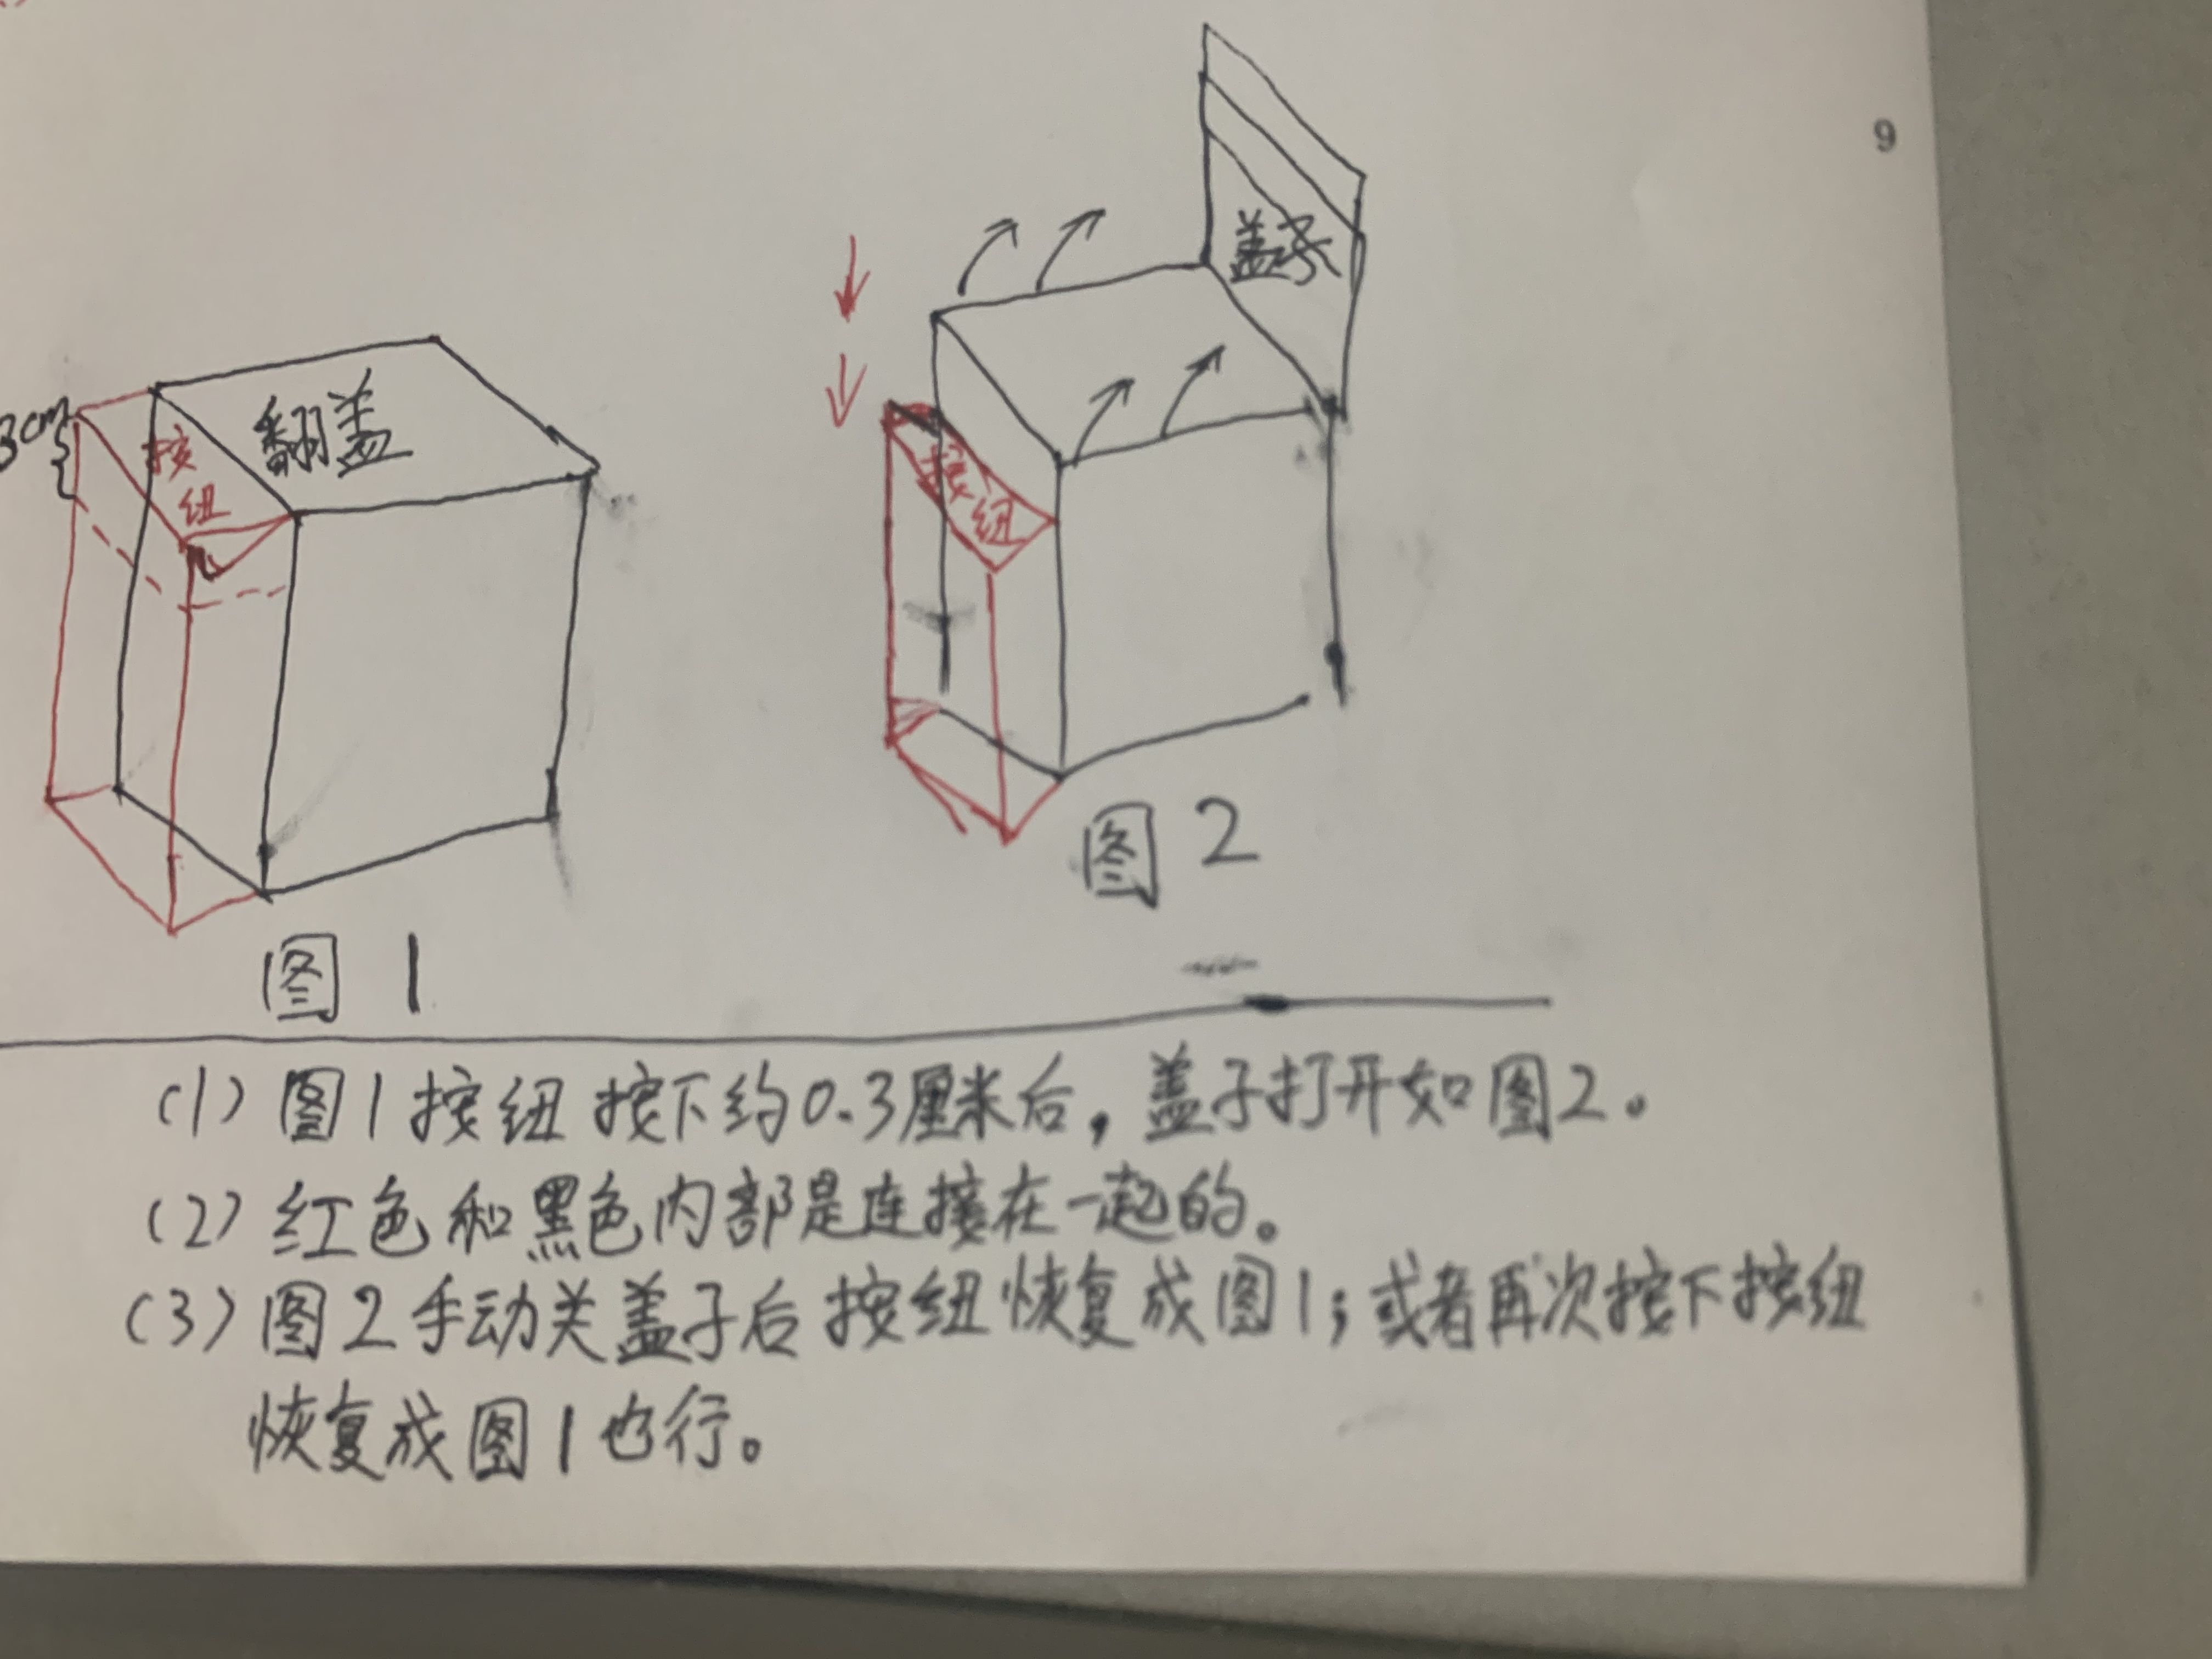 9
盖子
3cm
按
纽
翻盖
按
纽
图2
图1
(1) 图1按纽按下约0.3厘米后，盖子打开如图2。
(2) 红色和黑色内部是连接在一起的。
(3) 图2手动关盖子后按纽恢复成图1；或者再次按下按纽
恢复成图1也行。